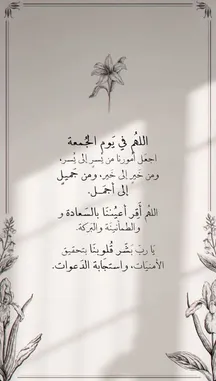 اللهُم في يَومِ الجُمعة
اجعَل أمورنا من يُسر إلى يُسر،
ومن خَير إلى خَير، ومن جَميلٍ
إلى أجمَل.
اللهُم أقِر أعيُننَا بالسَعادة و
والطمأنينَة والبَركة.
يَا ربّ بَشّر قُلوبنَا بتحقيق
الأمنيَات، واستجَابة الدَعوات.